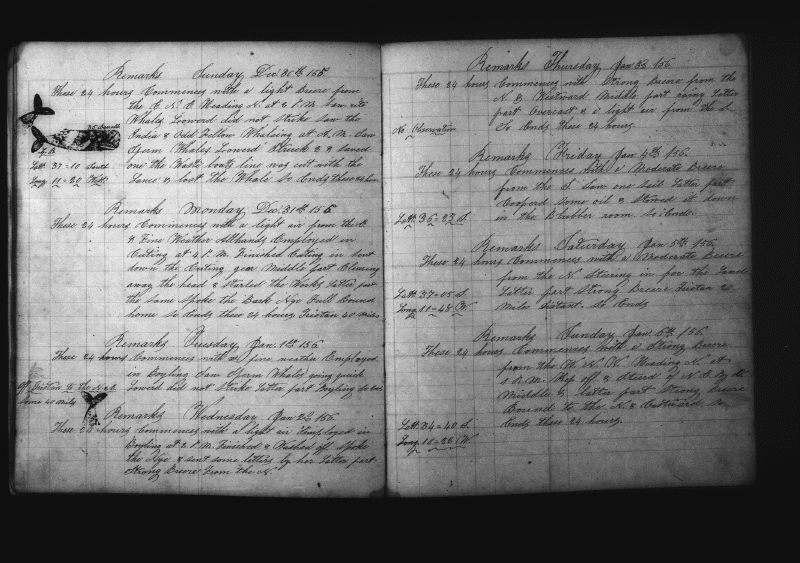 Remarks Sunday Dec 30th 155
These 24 hours Commences with a light Breeze from
the E. N. E Heading N. at 2 P.M. Saw
Whales Lowered did not Strike Saw the
India & Odd Fellow Whaleing at A.M. Saw
Sperm Whales Lowered Struck 2 & Saved
one the Waste boats line was cut with the
Lance & lost the Whale So Ends these 24 hours
L.B.
Latt. 37=10 South
Long 11=20 West
Remarks Monday Dec 31st 155
These 24 hours Commences with a light air from the E.
& Fine Weather All hands Employed in
Cutting at 4 P.M. Finished Cutting in sent
down the Cuting gear Middle part Clearing
away the head & Started the Works Latter part
the same Spoke the Bark Nye Full Bound
home So Ends these 24 hours Tristan 40 Miles
Remarks Tuesday Jan. 1st 156
These 24 hours Commences with fine weather Employed
in Boyling Saw Sperm Whales going quick
Lowered did not Strike Latter part Boyling
Tristan to the
some 40 Miles
Remarks Wednesday Jan 2d 156
These 24 hours Commences with a light air Employed in
Boyling at 2 P.M. Finished & Washed off Spoke
the Nye & sent some letters by her Latter part
Strong Breeze from the N.
Remarks Thursday Jan 3d 156
These 24 hours Commences with Strong Breeze from the
N. & Westward Middle part rainy Latter
part Overcast & a light air from the S.
So Ends these 24 hours
No Observation
Remarks Friday Jan 4th 156
These 24 hours Commences with a Moderate Breeze
from the S. Saw one Sail Latter part
Coopard some oil & Stowed it down
in the Blubber room So Ends
Latt. 36=23 S.
Remarks Saturday Jan 5th 156
These 24 hours Commences with a Moderate Breeze
from the N Stearing in for the Land
Latter part Strong Breeze Tristan 20
Miles Distant. So Ends
Latt. 37=05 S.
Long 11=48 W.
Remarks Sunday Jan 6th 156
These 24 hours Commences with a Strong Breeze
from the W. N. W. Heading N. at
P.M. Kep off & Steard N. E By E
Middle & latter part Strong Breeze
Bound to the N. & Eastward So
Ends these 24 hours.
Latt. 34=40 S.
Long 11=26 W.